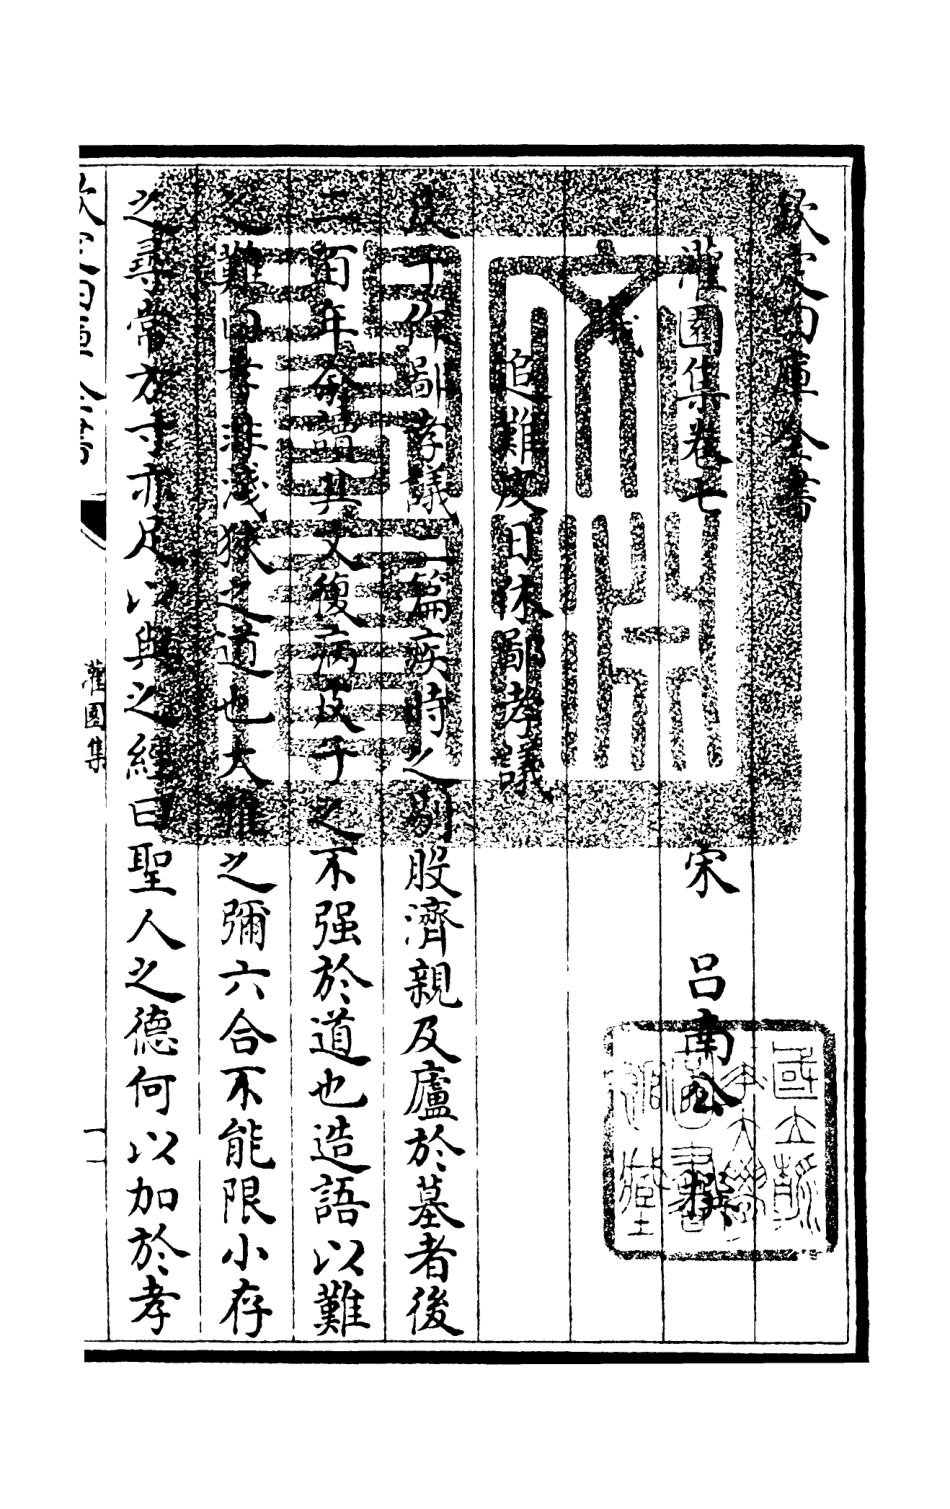 欽定四庫全書
灌園集卷七
宋 呂南公 撰
議
追難皮日休鄙孝議
皮子作鄙孝議二篇疾時之剔股濟親及廬於墓者後
二百年余讀其文復病皮子之不强於道也造語以難
之難曰孝非淺狹之道也大推之彌六合不能限小存
之尋常方寸亦足以與之經曰聖人之德何以加於孝
欽定四庫全書
灌園集
一